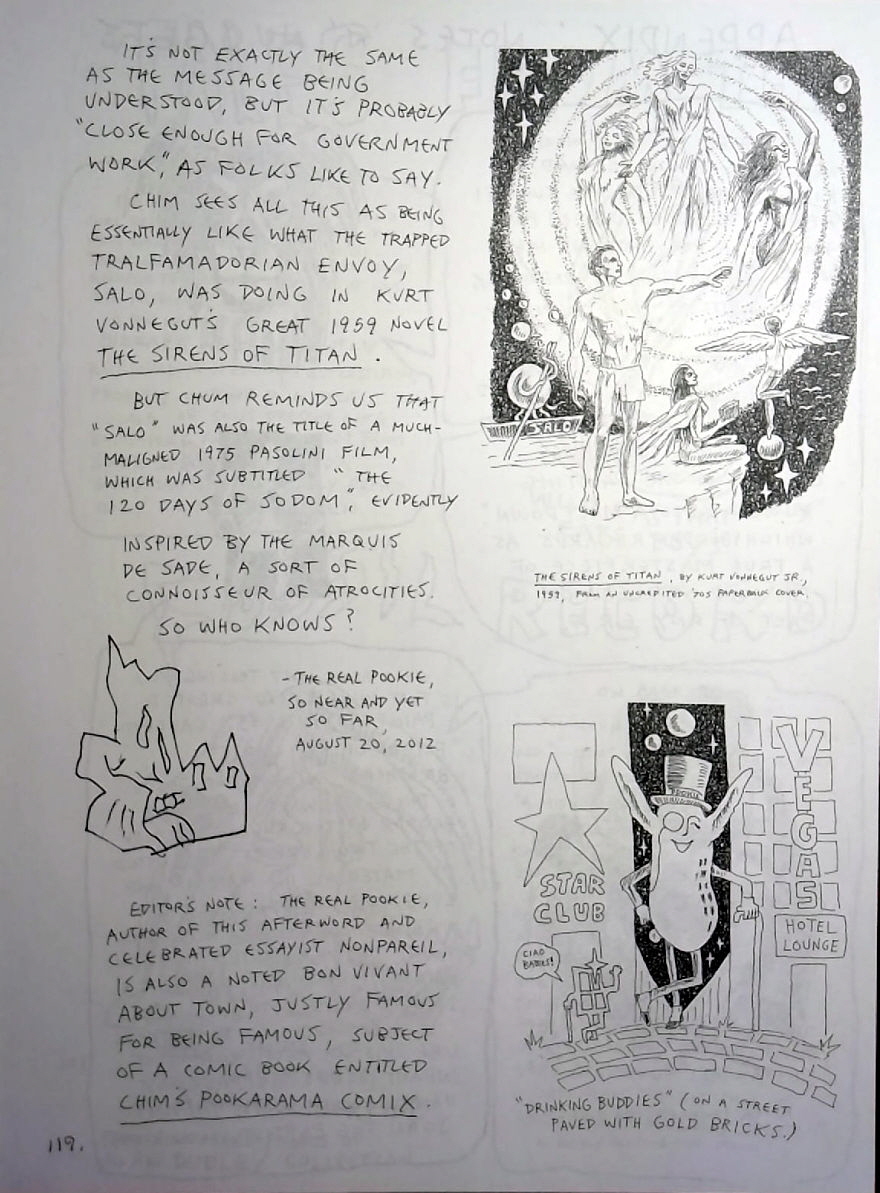 IT'S NOT EXACTLY THE SAME
AS THE MESSAGE BEING
UNDERSTOOD, BUT IT'S PROBABLY
"CLOSE ENOUGH FOR GOVERNMENT
WORK," AS FOLKS LIKE TO SAY.
CHIM SEES ALL THIS AS BEING
ESSENTIALLY LIKE WHAT THE TRAPPED
TRALFAMADORIAN ENVOY,
SALO, WAS DOING IN KURT
VONNEGUT'S GREAT 1959 NOVEL
THE SIRENS OF TITAN.
BUT CHUM REMINDS US THAT
"SALO" WAS ALSO THE TITLE OF A MUCH-
MALIGNED 1975 PASOLINI FILM,
WHICH WAS SUBTITLED "THE
120 DAYS OF SODOM", EVIDENTLY
INSPIRED BY THE MARQUIS
DE SADE, A SORT OF
CONNOISSEUR OF ATROCITIES.
SO WHO KNOWS?
- THE REAL POOKIE,
SO NEAR AND YET
SO FAR,
AUGUST 20, 2012
EDITOR'S NOTE: THE REAL POOKIE,
AUTHOR OF THIS AFTERWORD AND
CELEBRATED ESSAYIST NONPAREIL,
IS ALSO A NOTED BON VIVANT
ABOUT TOWN, JUSTLY FAMOUS
FOR BEING FAMOUS, SUBJECT
OF A COMIC BOOK ENTITLED
CHIM'S POOKARAMA COMIX.
119.
SALO
THE SIRENS OF TITAN, BY KURT VONNEGUT JR.,
1959, FROM AN UNCREDITED '70S PAPERBACK COVER.
POOKIE
STAR
CLUB
VEGAS
HOTEL
LOUNGE
CIAO
BABIES!
"DRINKING BUDDIES" (ON A STREET
PAVED WITH GOLD BRICKS.)